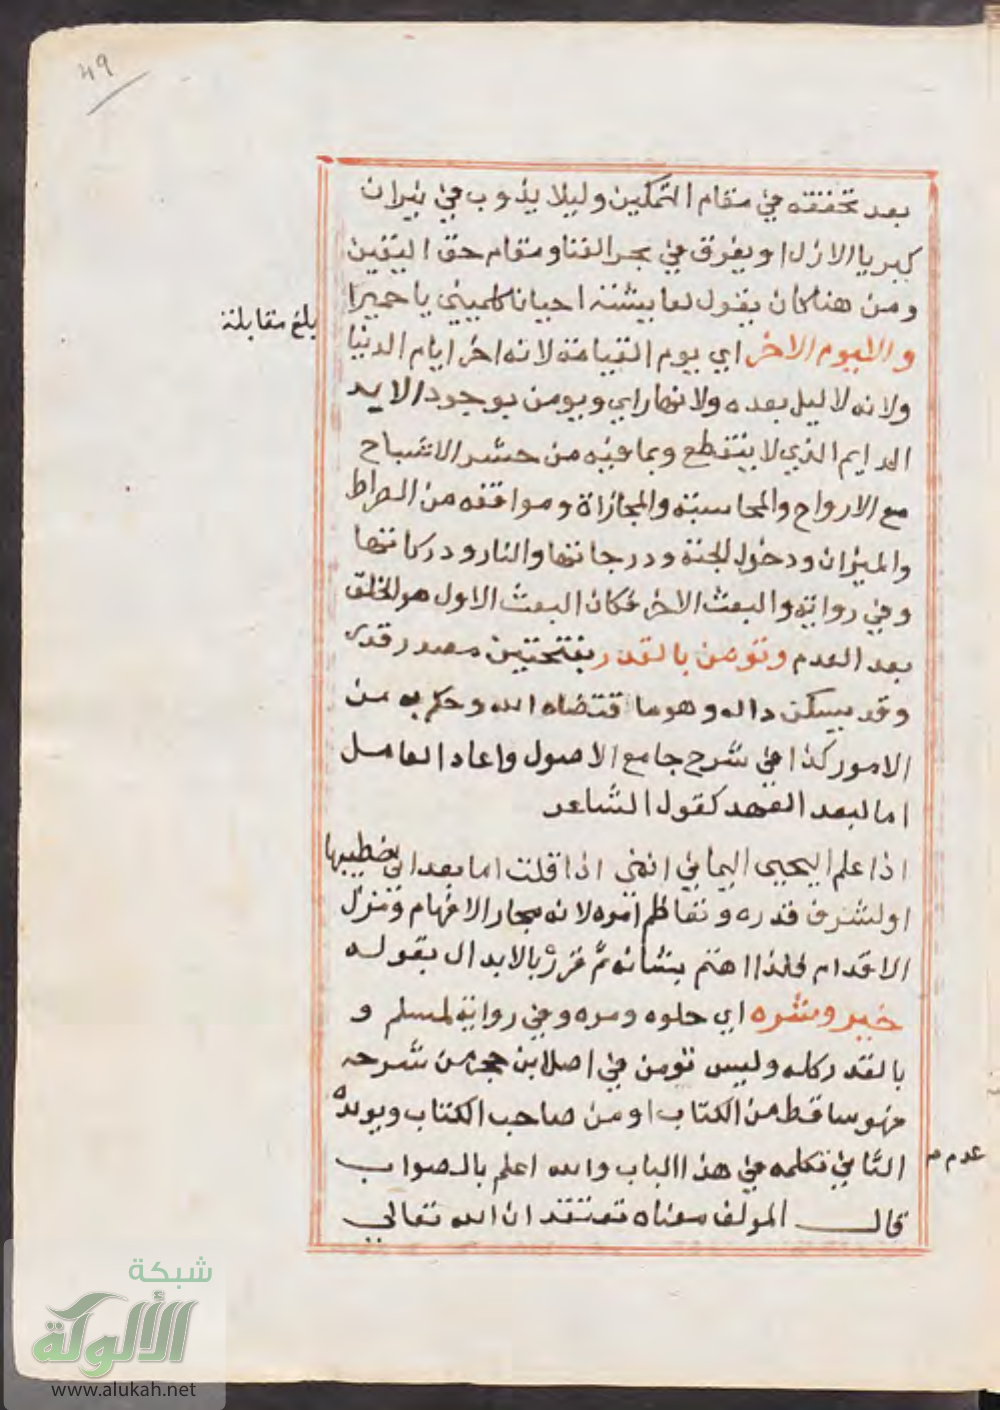 49
بعد تحققه في مقام التمكين وليلا يذوب في نيران
كبريا الازل او يغرق في بحر الفنا ومقام حق اليقين
ومن هنا كان يقول لعايشة احيانا كلميني يا حميرا
بلغ مقابلة
واليوم الاخر اي يوم القيامة لانه اخر ايام الدنيا
ولانه لا ليل بعده ولا نهار اي ويومن بوجود الابد
الدايم الذي لا ينقطع وبما فيه من حشر الاشباح
مع الارواح والمحاسبة والمجازاة ومواقفه من الصراط
والميزان ودخول الجنة ودرجاتها والنار ودركاتها
وفي رواية والبعث الاخر فكان البعث الاول هو الخلق
بعد العدم وتومن بالقدر بفتحتين مصدر قدر
وقد يسكن داله وهو ما اقتضاه الله وحكم به من
الامور كذا في شرح جامع الاصول واعاد العامل
اما لبعد العهد كقول الشاعر
اذا علم الحيي اليماني انني اذا قلت اما بعد اني خطيبها
او لشرف قدره وتعاظم امره لانه مجار الافهام ومنزل
الاقدام فلذا اهتم بشانه ثم قرر بالابدال بقوله
خيره وشره اي حلوه ومره وفي رواية لمسلم و
بالقدر كله وليس تومن في اصل ابن حجر من شرحه
فهو ساقط من الكتاب او من صاحب الكتاب ويويده
عدم
الثاني تكلمه في هذا الباب والله اعلم بالصواب
قال المولف معناه تعتقد ان الله تعالى
شبكة
الألوكة
www.alukah.net